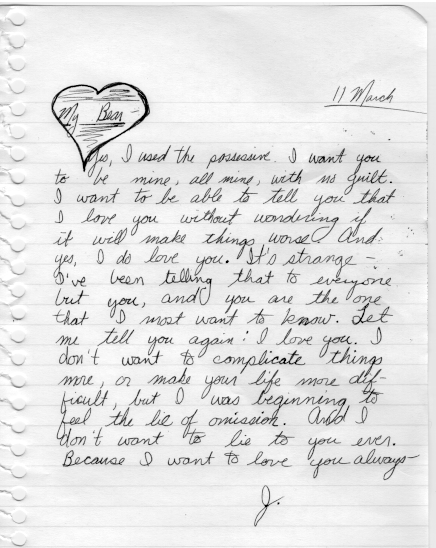 11 March
My Bear
Yes, I used the possessive. I want you
to be mine, all mine, with no guilt.
I want to be able to tell you that
I love you without wondering if
it will make things worse. And:
yes, I do love you. It's strange –
I've been telling that to everyone
but you, and you are the one
that I most want to know. Let
me tell you again: I love you. I
don't want to complicate things
more, or make your life more dif-
ficult, but I was beginning to
feel the lie of omission. And I
don't want to lie to you ever.
Because I want to love you always –
J.